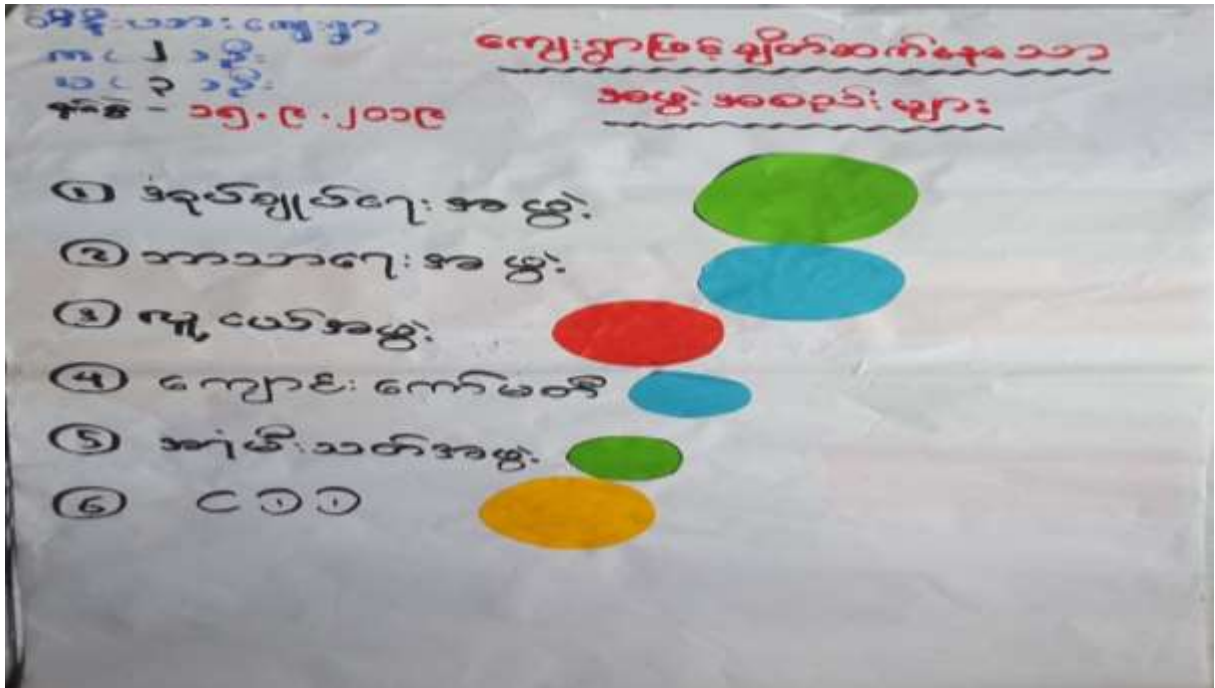 ကျေးရွာ
ကျား ၂ ဦး
မ ၃ ဦး
နေ့စွဲ - ၁၅.၉.၂၀၁၉
ကျေးရွာဖြင့် ချိတ်ဆက်နေသော
အဖွဲ့အစည်းများ
① အုပ်ချုပ်ရေးအဖွဲ့
② ဘာသာရေးအဖွဲ့
③ လူငယ်အဖွဲ့
④ ကျောင်းကော်မတီ
⑤ အရံမီးသတ်အဖွဲ့
⑥